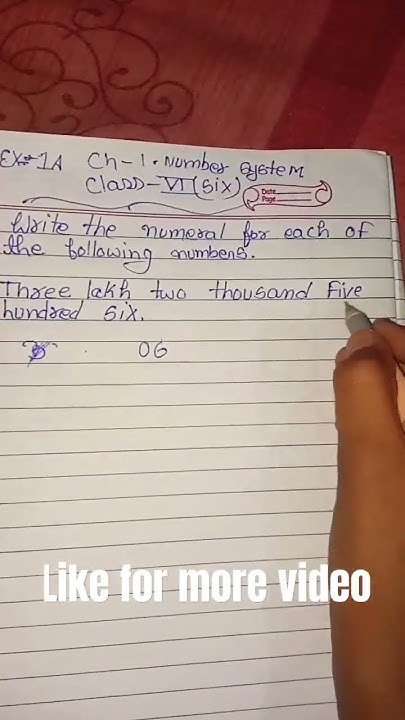 Ex-1A Ch-1. Number System
Class-VI (six)
Date
Page
Write the numeral for each of
the following numbers.
Three lakh two thousand Five
hundred six.
06
Like for more video